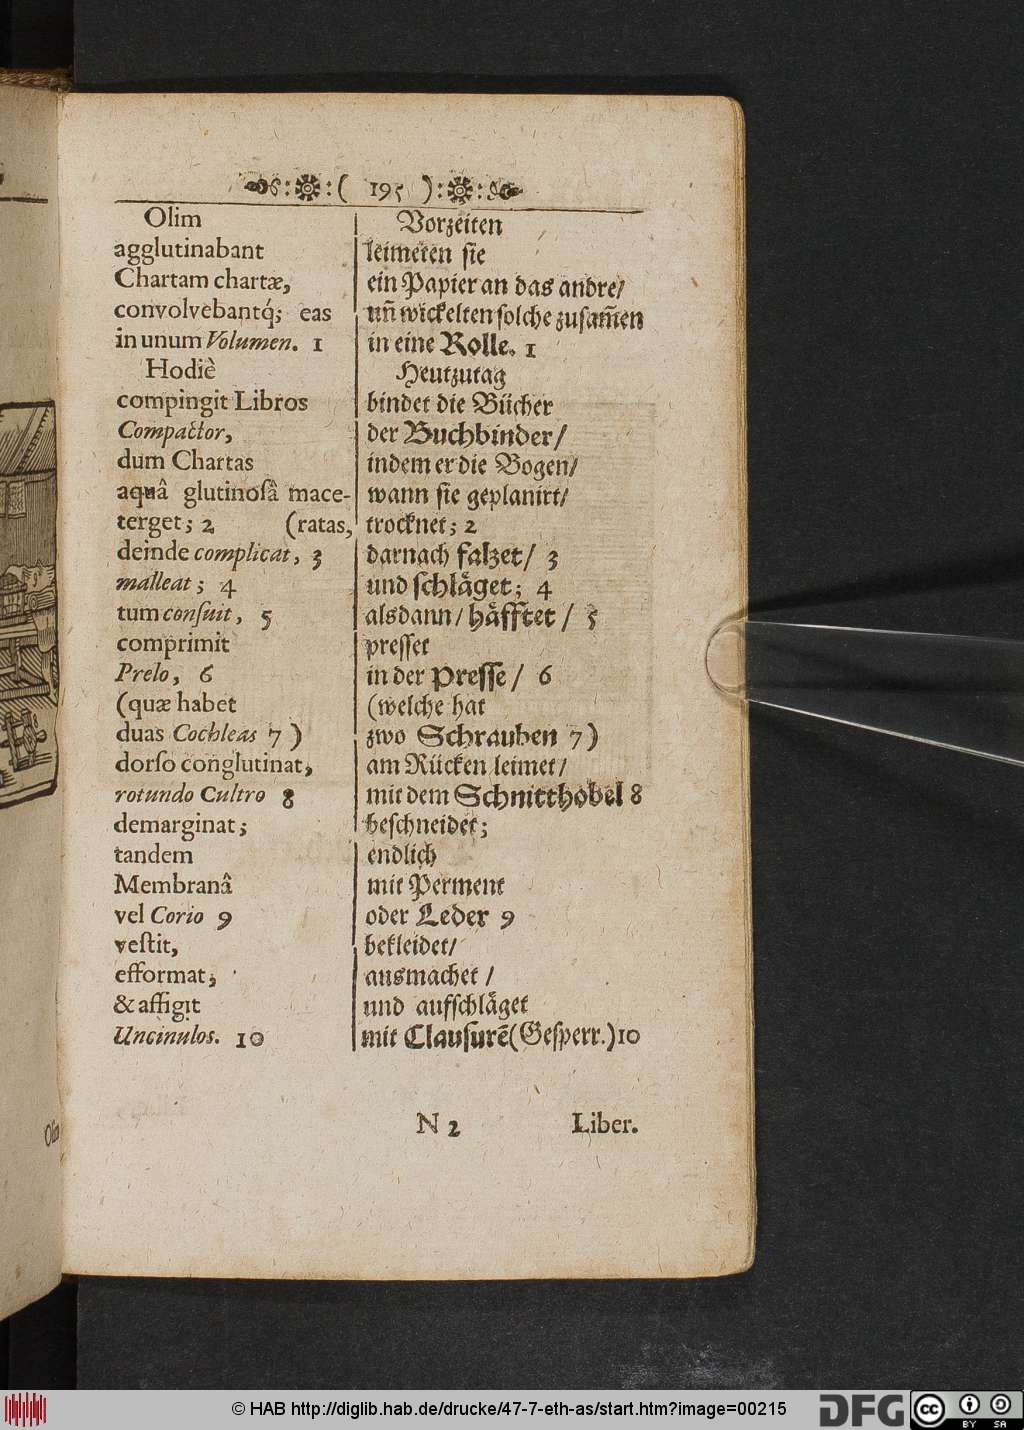 ( 195 )
Olim
agglutinabant
Chartam chartæ,
convolvebantq́; eas
in unum Volumen. 1
Hodiè
compingit Libros
Compactor,
dum Chartas
aquâ glutinoſâ mace-
terget; 2 (ratas,
deinde complicat, 3
malleat; 4
tum conſuit, 5
comprimit
Prelo, 6
(quæ habet
duas Cochleas 7)
dorſo conglutinat,
rotundo Cultro 8
demarginat;
tandem
Membranâ
vel Corio 9
veſtit,
efformat;
& affigit
Uncinulos. 10
Vorzeiten
leimeten ſie
ein Papier an das andre/
uñ wickelten ſolche zuſam̃en
in eine Rolle. 1
Heutzutag
bindet die Bücher
der Buchbinder/
indem er die Bogen/
wann ſie geplanirt/
trocknet; 2
darnach falzet/ 3
und ſchlåget; 4
alsdann/ håfftet/ 5
preſſet
in der Preſſe/ 6
(welche hat
zwo Schrauben 7)
am Rücken leimet/
mit dem Schnitthobel 8
beſchneidet;
endlich
mit Perment
oder Leder 9
bekleidet/
ausmachet/
und aufſchlåget
mit Clauſurẽ (Geſperr.) 10
N 2 Liber.
© HAB http://diglib.hab.de/drucke/47-7-eth-as/start.htm?image=00215
DFG
cc BY SA